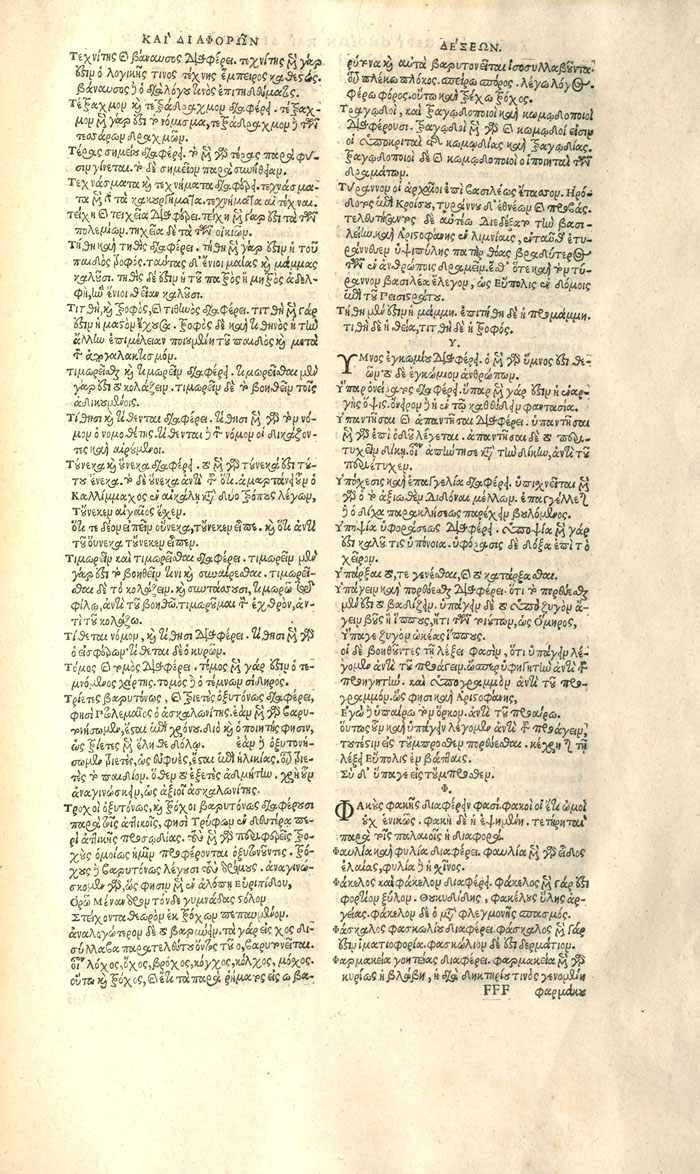 ΚΑΙ ΔΙΑΦΟΡΩΝ
Τεχνίτης καὶ βάναυσος διαφέρει. τεχνίτης μὲν γάρ
ἐστιν ὁ λογικῆς τινος τέχνης ἔμπειρος καθεστώς.
βάναυσος δὲ ὁ
Τέραχμον καὶ τετράδραχμον διαφέρει.
μον μὲν γάρ ἐστι νόμισμα, τετράδραχμον δὲ τὸ
τεσσάρων δραχμῶν.
Τέρας σημείου διαφέρει. τὸ μὲν γὰρ τέρας παρὰ φύ-
σιν γίνεται. τὸ δὲ σημεῖον παρὰ συνήθειαν.
Τεχνάσματα καὶ τεχνήματα διαφέρει. τεχνάσμα-
τα μὲν τὰ κακουργήματα. τεχνήματα αἱ τέχναι.
τείχη καὶ τειχεῖα διαφέρει. τείχη μὲν γάρ ἐστι τὰ τῶν
πολεμίων. τειχεῖα δὲ τὰ τῶν οἰκιῶν.
Τήθη καὶ τηθὶς διαφέρει. τήθη μὲν γάρ ἐστιν ἡ τοῦ
παιδὸς τροφός. ταύτας δ' ἔνιοι μαίας καὶ μάμμας
καλοῦσι. τηθὶς δέ ἐστιν ἡ τοῦ πατρὸς ἢ μητρὸς ἀδελ-
φὴ, ἣν ἔνιοι θείαν καλοῦσι.
Τιτθὴ καὶ τροφὸς, καὶ τιθηνὸς διαφέρει. τιτθὴ μὲν γάρ
ἐστιν ἡ μαστὸν ἔχουσα. τροφὸς δὲ καὶ τιθηνὸς ἡ τὴν
ἄλλην ἐπιμέλειαν ποιουμένη τοῦ παιδὸς καὶ μετὰ
τὸν ἀπογαλακτισμόν.
τιμωρεῖσθαι καὶ τιμωρεῖν διαφέρει. τιμωρεῖσθαι μὲν
γάρ ἐστι τὸ κολάζειν. τιμωρεῖν δὲ τὸ βοηθεῖν τοῖς
ἀδικουμένοις.
Τίθησι καὶ τίθενται διαφέρει. τίθησι μὲν γὰρ τὸν νό-
μον ὁ νομοθέτης. τίθενται δὲ τὸν νόμον οἱ δικάζον-
τες καὶ αἱρούμενοι.
Τούνεκα καὶ οὕνεκα διαφέρει. τὸ μὲν γὰρ τούνεκά ἐστι τού-
του ἕνεκα. τὸ δὲ οὕνεκα ἀντὶ τοῦ ὅτι. ἁμαρτάνει οὖν ὁ
Καλλίμαχος ἐν αἰτίαις κατὰ δύο τρόπους λέγων,
Τούνεκεν αἴγαῖος ἔχεν.
ὅτι τε δέον εἰπεῖν οὕνεκα, τούνεκεν εἶπε. καὶ ὅτι ἀντὶ
τοῦ οὕνεκα τούνεκεν εἶπεν.
Τιμωρεῖν καὶ τιμωρεῖσθαι διαφέρει. τιμωρεῖν μὲν
γάρ ἐστι τὸ βοηθεῖν τινι καὶ συναίρεσθαι. τιμωρεῖ-
σθαι δὲ τὸ κολάζειν.
φίλῳ, ἀντὶ τοῦ βοηθῶ. τιμωροῦμαι τὸν ἐχθρὸν, ἀν-
τὶ τοῦ κολάζω.
Τίθεται νόμον, καὶ τίθησι διαφέρει. τίθησι μὲν
ὁ εἰσφέρων. τίθεται δὲ ὁ κυρῶν.
Τόμος καὶ τομὸς διαφέρει. τόμος μὲν γάρ ἐστιν ὁ τε-
μνόμενος χάρτης. τομὸς δὲ ὁ τέμνων σίδηρος.
Τριέτες βαρυτόνως, καὶ τριετὲς ὀξυτόνως διαφέρει,
φησὶ Πτολεμαῖος ὁ ἀσκαλωνίτης. ἐὰν μὲν γὰρ βαρυ-
τονήσωμεν, ἔσται ἐπὶ χρόνου. διὸ καὶ ὁ ποιητής φησιν,
ὣς τρίετες μὲν ἔληθε δόλῳ. ἐὰν δὲ ὀξυτονή-
σωμεν τριετὲς, ὡς εὐφυὲς, ἔσται ἐπὶ ἡλικίας.
ἀναγινώσκειν, ὡς ἀξιοῖ ὁ ἀσκαλωνίτης.
Τροχοὶ ὀξυτόνως, καὶ τρόχοι βαρυτόνως διαφέρουσι
παρὰ τοῖς ἀττικοῖς, φησὶ Τρύφων ἐν δευτέρᾳ πε-
ρὶ ἀττικῆς προσῳδίας. τοὺς μὲν γὰρ περιφερεῖς τρο-
χοὺς ὁμοίως ἡμῖν προφέρονται ὀξυτονοῦντες. τρό-
χους δὲ βαρυτόνως λέγουσι τοὺς δρόμους. ἀναγινώ-
σκομεν γοῦν, ὥς φησιν ἐν ἀλόπῃ Εὐριπίδου,
Ὁρῶ μὲν ἀνδρῶν τόνδε γυμνάδα στόλον
Στείχοντα θεωρὸν ἐκ τρόχων πεπαυμένον.
ἀναλογώτερον δὲ τὸ βαρύνειν. τὰ γὰρ εἰς χος δι-
σύλλαβα παραληγόμενα τῷ ο, βαρύνεται.
οἷον λόχος, ὄχος, βρόχος, κόγχος, κόλχος, μόχος.
οὕτω καὶ τρόχος, καὶ ἔτι τὰ παρὰ ῥήματος εἰς ω βα-
ΛΕΞΕΩΝ.
ρύτονα καὶ αὐτὰ βαρυτονεῖται ἰσοσυλλαβοῦντα.
οἷον πλέκω πλόκος. σπείρω σπόρος. λέγω λόγος.
φέρω φόρος. οὕτω καὶ τρέχω τρόχος.
Τραγῳδοὶ, καὶ τραγῳδοποιοὶ καὶ κωμῳδοποιοὶ
διαφέρουσι. τραγῳδοὶ μὲν γὰρ καὶ κωμῳδοί εἰσιν
οἱ ὑποκριταὶ τῆς κωμῳδίας καὶ τραγῳδίας.
τραγῳδοποιοὶ δὲ καὶ κωμῳδοποιοὶ οἱ ποιηταὶ τῶν
δραμάτων.
Τύραννον οἱ ἀρχαῖοι ἐπὶ βασιλέως ἔτασσον. Ηρό-
δοτος ἐπὶ Κροίσου, τύραννε δ' ἐθνέων
τελευτήσαντος δὲ αὐτέω διεδέξατο τὴν βασι-
ληίην. καὶ Αριστοφάνης ἐν λιμνίαις, ἐνταῦθ' ἐτυ-
ράννευεν ὑψιπύλης πατὴρ θόας βραδύτατος
τῶν ἐν ἀνθρώποις δραμεῖν. ἔσθ' ὅτε καὶ τὸν τύ-
ραννον βασιλέα ἔλεγον, ὡς Εὔπολις ἐν δήμοις
ἐπὶ τοῦ Πεισιστράτου.
Τήθη μέν ἐστιν ἡ μάμμη. ἐπιτήθη δὲ ἡ προμάμμη.
τιτθὴ δὲ ἡ θεία, τιτθὴ δὲ ἡ τροφός.
Υ.
ΥΜνος ἐγκωμίου διαφέρει. ὁ μὲν γὰρ ὕμνος ἐστὶ θε-
ῶν. τὸ δὲ ἐγκώμιον ἀνθρώπων.
Υπαρ ὀνείρατος διαφέρει. ὕπαρ μὲν γάρ ἐστιν ἡ ἐναρ-
γὴς ὄψις. ὄνειρον δὲ ἡ ἐν τῷ καθεύδειν φαντασία.
Υπαντῆσαι καὶ ἀπαντῆσαι διαφέρει. ὑπαντῆσαι
μὲν γὰρ ἐπὶ ὁδοῦ λέγεται. ἀπαντῆσαι δὲ τὸ περι-
τυχεῖν δίκῃ. οἷον ἀπήντησε κατὰ τὴν δίκην, ἀντὶ τοῦ
περιέτυχεν.
Υπόχεσις καὶ ἐπαγγελία διαφέρει. ὑπισχνεῖται μὲν
γὰρ ὁ τῷ ἀξιωθέντι διδόναι μέλλων. ἐπαγγέλλεται
δὲ ὁ δίχα παρακλήσεως παρέχειν βουλόμενος.
Υποψία ὑφοράσεως διαφέρει. ὑποψία μὲν γάρ
ἐστι καλοῦ τις ὑπόνοια. ὑφόρασις δὲ δόξα ἐπὶ τὸ
χεῖρον.
Υπάρξαι τό, τε γενέσθαι, καὶ τὸ κατάρξασθαι.
Υπάγειν καὶ πορεύεσθαι διαφέρει. ὅτι τὸ πορεύεσθαι
μέν ἐστι τὸ βαδίζειν. ὑπάγειν δὲ τὸ ὑπὸ ζυγὸν ἄ-
γειν βοῦς ἢ ἵππους, ἤ τι τῶν τοιούτων, ὡς Ομηρος,
Υπαγε ζυγὸν ὠκέας ἵππους.
οἱ δὲ βοηθοῦντες τῇ λέξει φασὶν, ὅτι ὑπάγειν λέ-
γομεν ἀντὶ τοῦ προάγειν. ὥσπερ ὑφηγητὴν ἀντὶ τοῦ
προηγητήν. καὶ ὑπογραμμὸν ἀντὶ τοῦ προ-
γραμμόν. ὥς φησι καὶ Αριστοφάνης,
Εγὼ δὲ ὑπαίρω τὸν ὅρκον. ἀντὶ τοῦ προαίρω.
οὕτως οὖν καὶ ὑπάγειν λέγομεν ἀντὶ τοῦ προάγειν,
τουτέστιν εἰς τοὔμπροσθεν πορεύεσθαι. κέχρηται δὲ τῇ
λέξει Εὔπολις ἐν βάπταις.
Σὺ δ' ὕπαγε εἰς τοὔμπροσθεν.
Φ.
ΦΑκοὺς φακῆς διαφέρειν φασί. φακοὶ οἱ ἔτι ὠμοὶ
οὐχ ἑνικῶς. φακῆ δὲ ἡ ἑψημένη. τετήρηται
παρὰ τοῖς παλαιοῖς ἡ διαφορά.
Φαυλία καὶ φυλία διαφέρει. φαυλία μὲν γὰρ εἶδος
ἐλαίας, φυλία δὲ ἡ σχῖνος.
Φάκελος καὶ φάκελον διαφέρει. φάκελος μὲν γάρ ἐστι
φορτίον ξύλων. Θουκυδίδης, φακέλους ὕλης ἀρ-
γείας. φάκελον δὲ ὁ μετὰ φλεγμονῆς σπασμός.
Φάσκαλος φασκωλίου διαφέρει. φάσκαλος μὲν γάρ
ἐστιν ἱματιοφορία. φασκώλιον δέ ἐστι δερμάτιον.
Φαρμακεία γοητείας διαφέρει. φαρμακεία μὲν γὰρ
κυρίως ἡ βλάβη, ἡ διὰ δηλητηρίου τινὸς γενομένη
FFF φαρμάκου